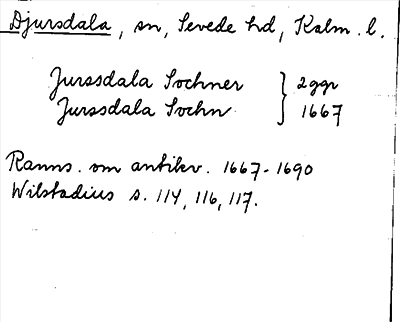 Djursdala, sn, Sevede hd, Kalm. l.
Jurssdala Sochner } 2 ggr
Jurssdala Sochn } 1667
Ranns. om antikv. 1667-1690
Wilstadius s. 114, 116, 117.